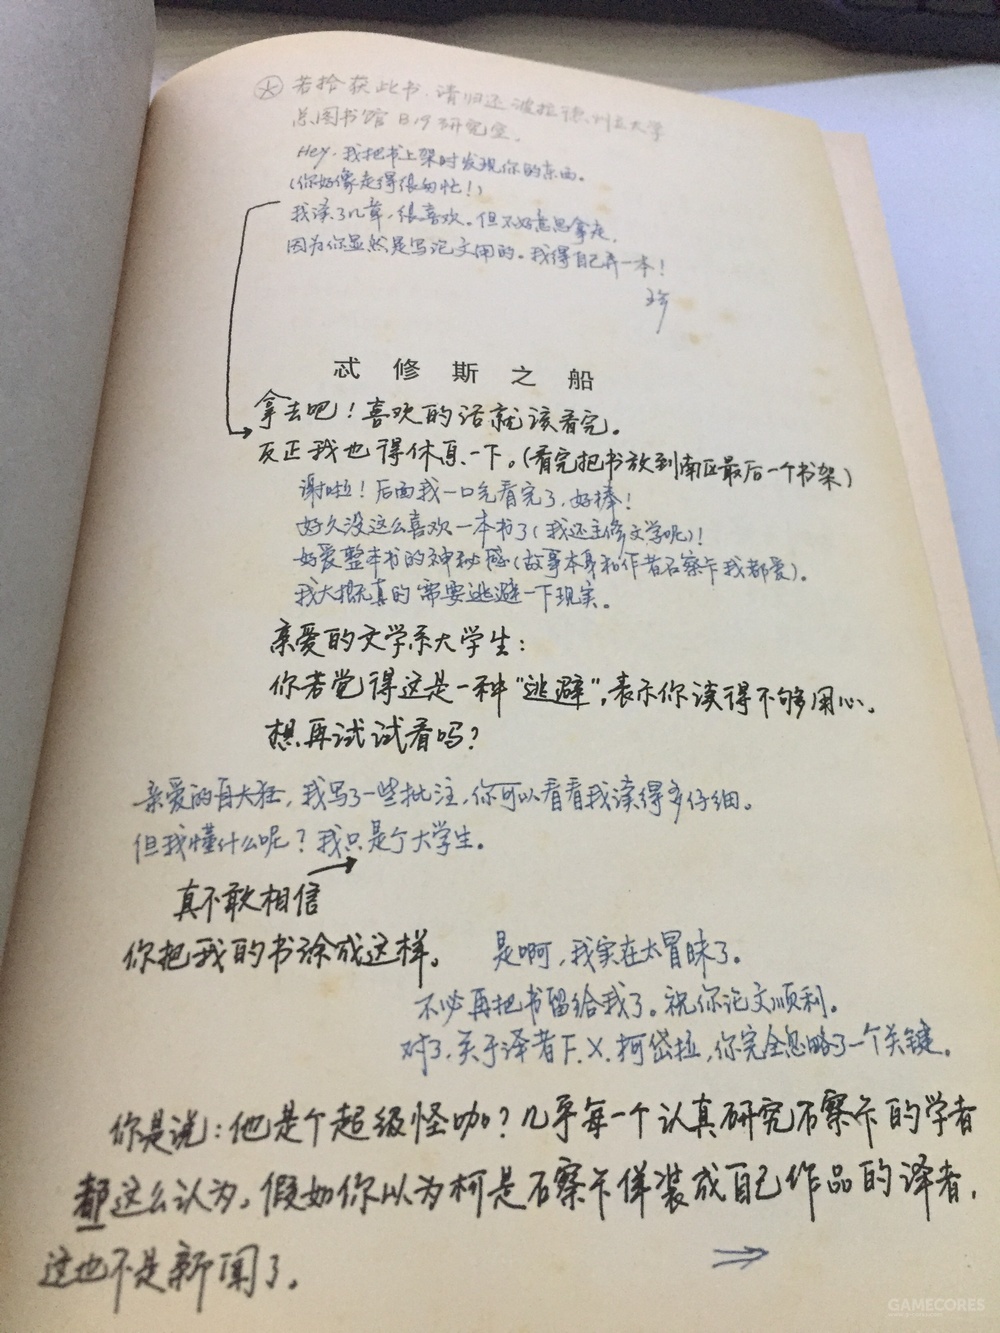 若拾获此书，请归还波拉德州立大学
总图书馆B19研究室。
Hey，我把书上架时发现你的东西。
(你好像走得很匆忙！)
我读了几章，很喜欢。但不好意思拿走，
因为你显然是写论文用的。我得自己弄一本！
珍
忒修斯之船
拿去吧！喜欢的话就该看完。
反正我也得休息一下。(看完把书放到南区最后一个书架)
谢啦！后面我一口气看完了，好棒！
好久没这么喜欢一本书了(我还主修文学呢)！
好爱整本书的神秘感(故事本身和作者石察卡我都爱)。
我大概真的需要逃避一下现实。
亲爱的文学系大学生：
你若觉得这是一种“逃避”，表示你读得不够用心。
想再试试看吗？
亲爱的自大狂，我写了一些批注，你可以看看我读得多仔细。
但我懂什么呢？我只是个大学生。
真不敢相信
你把我的书涂成这样。
是啊，我实在太冒昧了。
不必再把书留给我了。祝你论文顺利。
对了，关于译者F.X.柯岱拉，你完全忽略了一个关键。
你是说：他是个超级怪咖？几乎每一个认真研究石察卡的学者
都这么认为。假如你以为柯是石察卡佯装成自己作品的译者，
这也不是新闻了。
GAMECORES